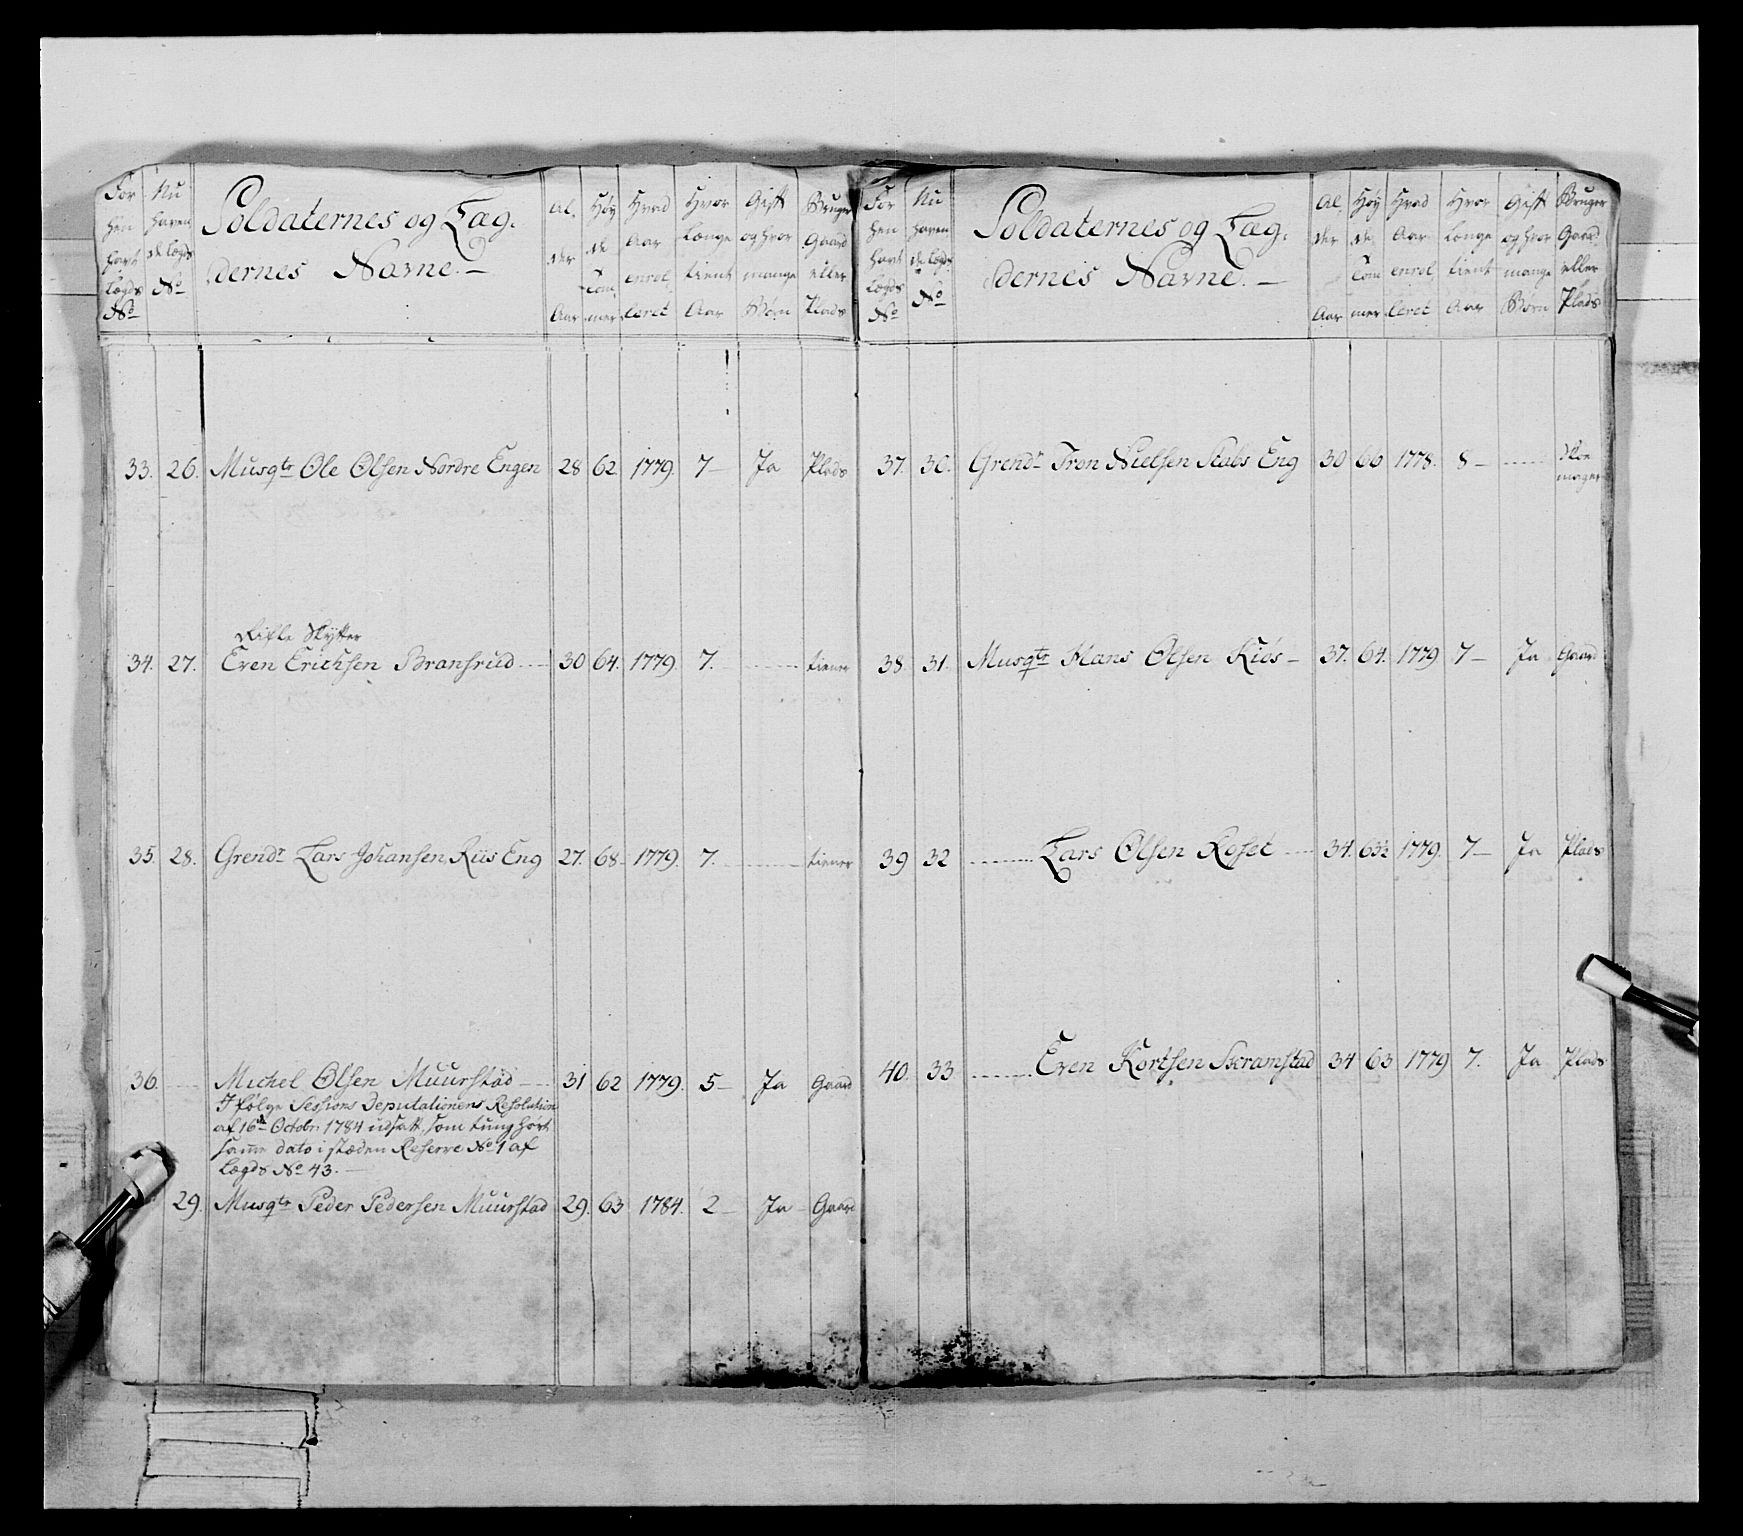 For hen havt Lægds No | Nu haven de Lægds No | Soldaternes og Læg- dernes Navne.- | Al- der Aar | Høy de Tom mer | Hvad Aar enrol- leret | Hvor Længe tient Aar | Gift og hvor mange Børn | Bruger Gaard eller Plads
33. 26. Musqtr Ole Olsen Nordre Engen 28 62 1779. 7 Ja Plads
Rifle Skytter
34. 27. Even Erichsen Bransrud 30 64. 1779. 7. tiener
35. 28. Grendr Lars Johansen Riis Eng 27. 68 1779. 7. tiener
36. Michel Olsen Muurstad 31 62 1779. 5 Ja Gaard
I følge Sessions Deputationens Resolution
af 16de Octobr 1784 udsatt, som tung hørt
samme dato i stæden Reserve No 1 af
Lægds No 43.
29. Musqtr Peder Pedersen Muurstad 29. 63 1784. 2 Ja Gaard
For hen havt Lægds No | Nu haven de Lægds No | Soldaternes og Læg- dernes Navne.- | Al- der Aar | Høy de Tom mer | Hvad Aar enrol- leret | Hvor Længe tient Aar | Gift og hvor mange Børn | Bruger Gaard eller Plads
37. 30. Grendr Tron Nielsen Stabs Eng 30 66 1778. 8 Skoe mager
38. 31. Musqtr Hans Olsen Kiøs 37. 64. 1779 7 Ja Gaard
39 32 Lars Olsen Roset 34. 63½ 1779. 7 Ja Plads
40. 33 Even Kortsen Skramstad 34 63 1779 7. Ja Plads